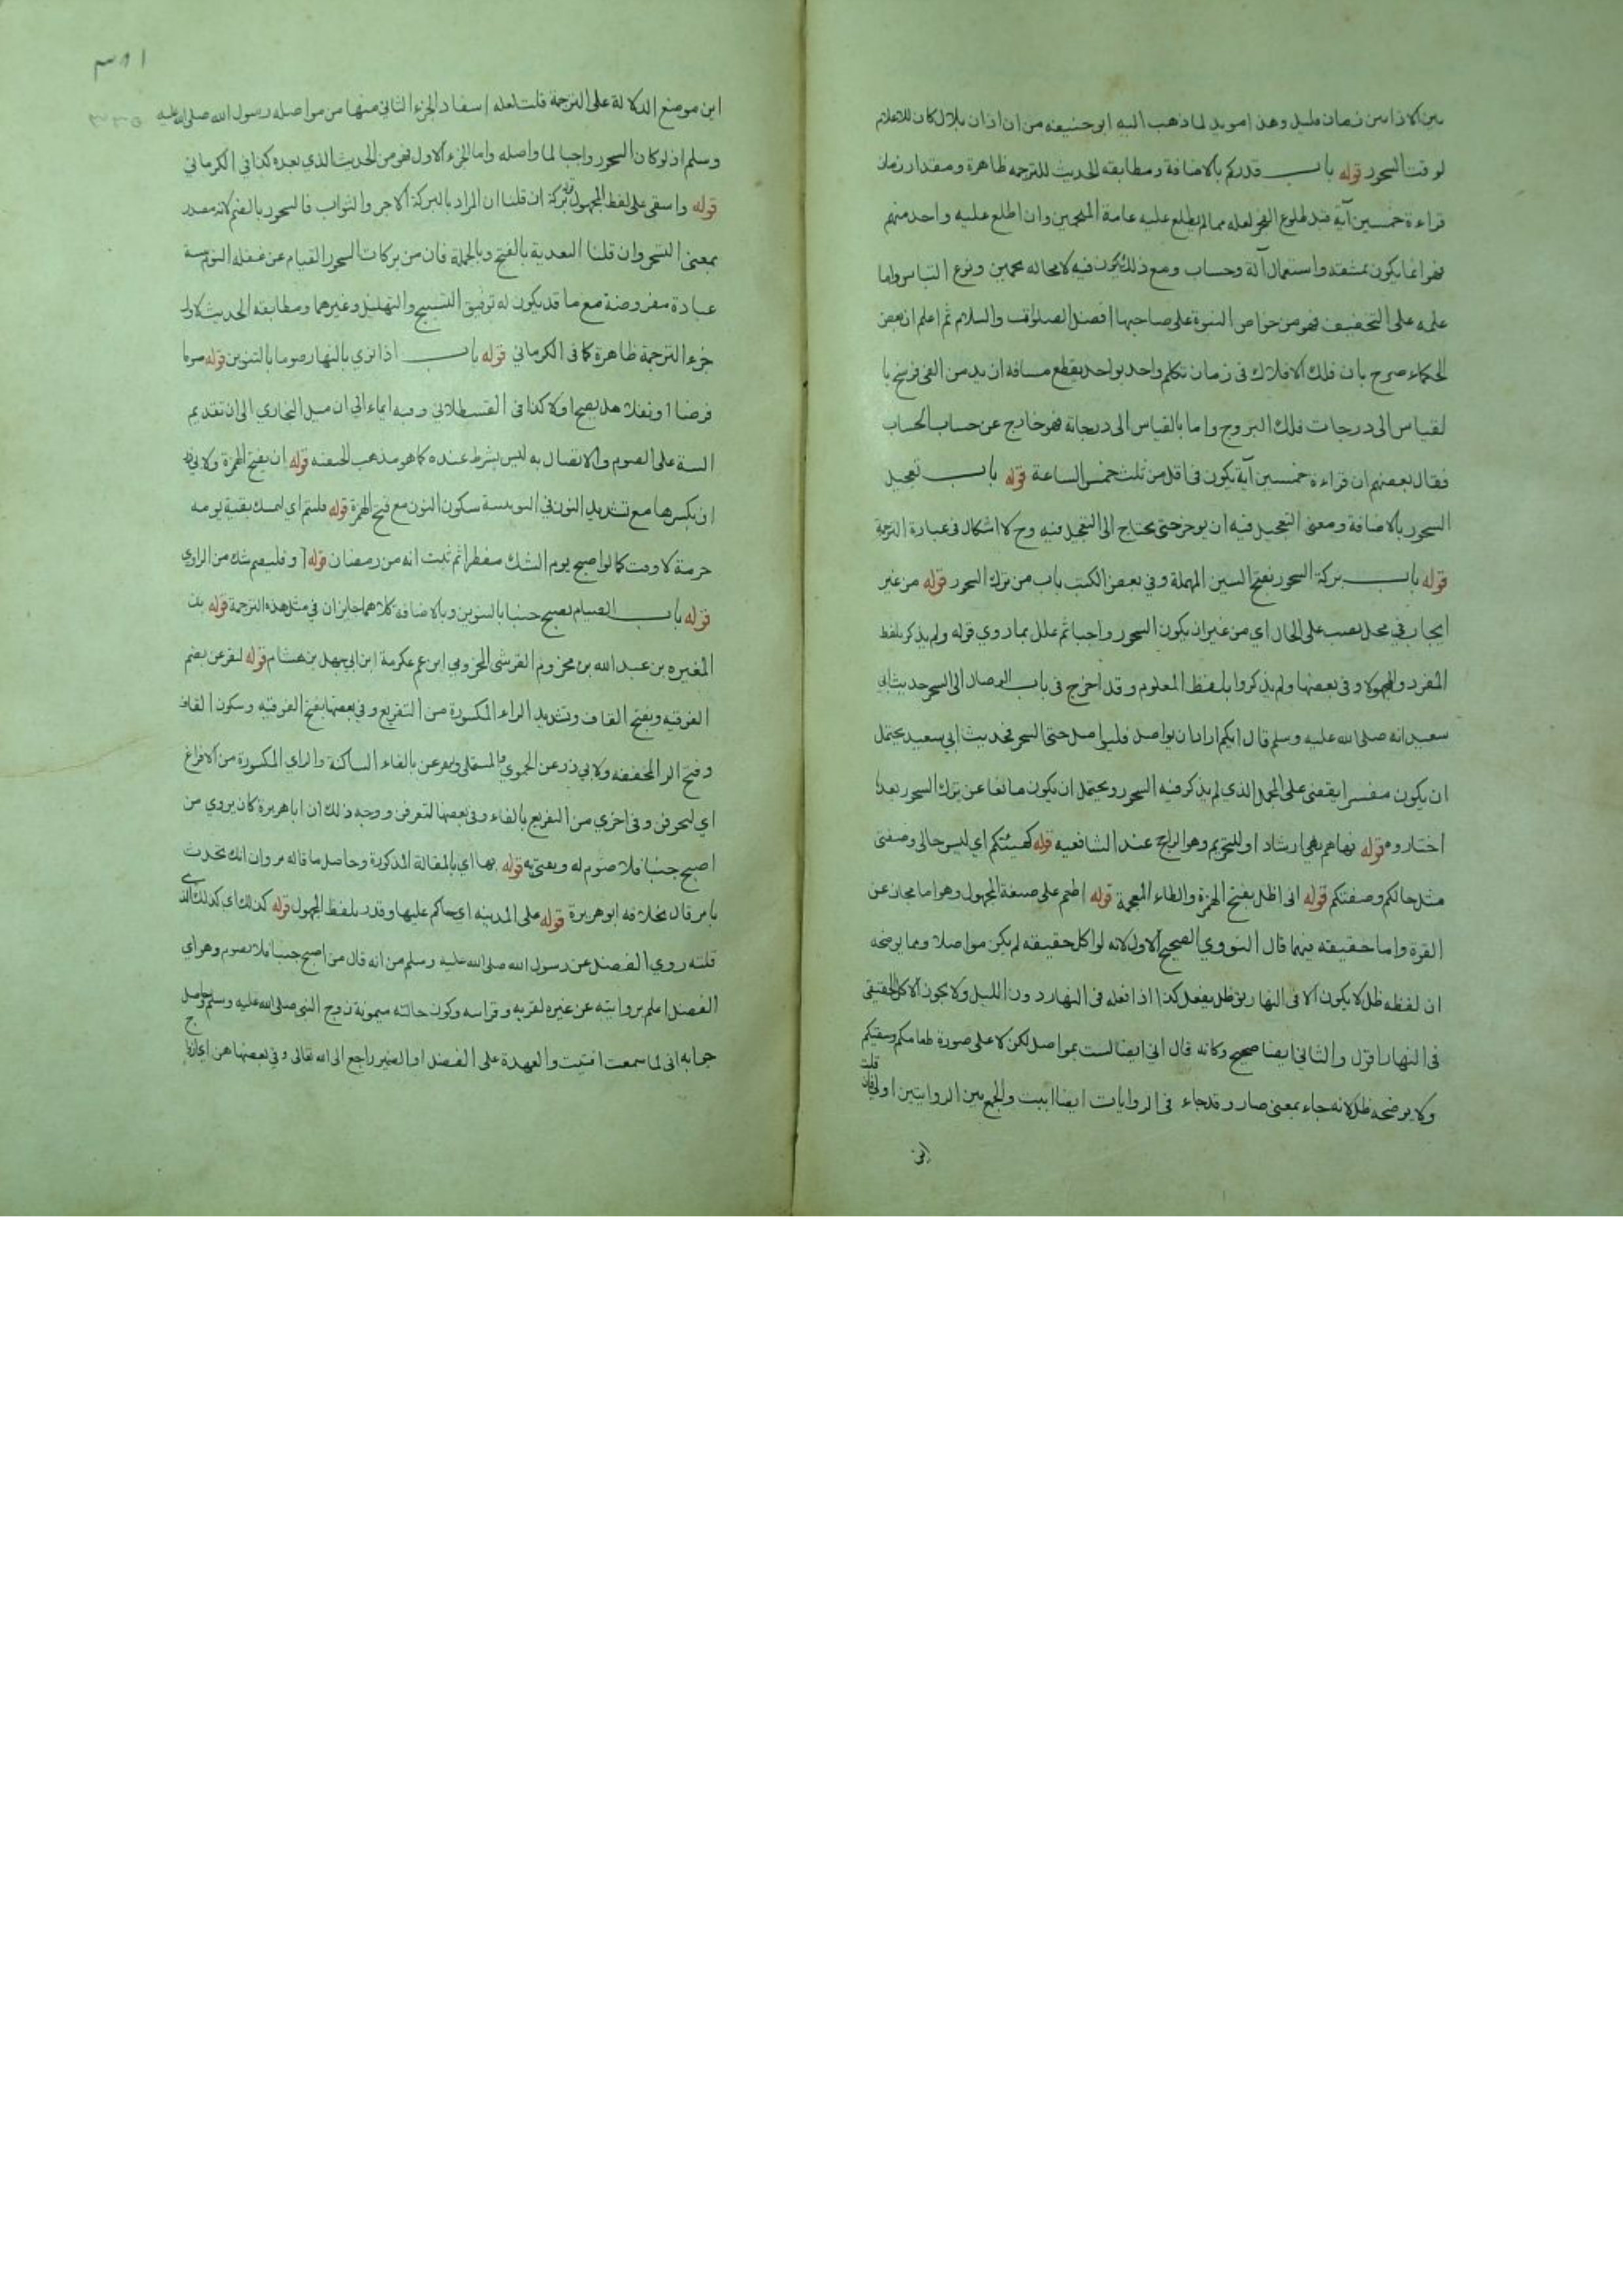 بين الاذانين زمان قليل وهذا مويد لما ذهب اليه ابو حنيفه من ان اذان بلال كان للاعلام
لوقت السحور قوله باب قدركم بالاضافة ومطابقه الحديث للترجمه ظاهرة ومقدار زمان
قراءة خمسين آية قبل طلوع الفجر لعله مما لم يطلع عليه عامة المنجمين وان اطلع عليه واحد منهم
فهو انما يكون بمشقه واستعمال آلة وحساب ومع ذلك يكون فيه لا محاله تخمين ونوع التباس واما
علمه على التخفيف فهو من خواص النبوة على صاحبها افضل الصلوات والسلام ثم اعلم ان بعض
الحكماء صرح بان فلك الافلاك في زمان تكلم واحد بواحد يقطع مسافة ازيد من الفي فرسخ با
لقياس الى درجات فلك البروج واما بالقياس الى درجاته فهو خارج عن حساب الحساب
فقال بعضهم ان قراءة خمسين آية يكون في اقل من ثلث خمس الساعة قوله باب تعجيل
السحور بالاضافة ومعنى التعجيل فيه ان يوخر حتى يحتاج الى التعجيل فيه وح لا اشكال في عبارة الترجمة
قوله باب بركة السحور بفتح السين المهملة وفي بعض الكتب باب من ترك السحور قوله من غير
ايجاب في محل نصب على الحال اي من غير ان يكون السحور واجبا ثم علل بما روي قوله ولم يذكر بلفظ
المفرد والمجهول وفي بعضها ولم يذكروا بلفظ المعلوم وقد اخرج في باب الوصال الى السحر حديث ابي
سعيد انه صلى الله عليه وسلم قال ايكم اراد ان يواصل فليواصل حتى السحر فحديث ابي سعيد يحتمل
ان يكون مفسرا يقضى على المجمل الذي لم يذكر فيه السحور ويحتمل ان يكون مانعا عن ترك السحور بعد
اختاروه قوله نهاهم نهي ارشاد او للتحريم وهو الراجح عند الشافعيه قوله كهيئتكم اي ليس حالي وصفتي
مثل حالكم وصفتكم قوله اني اظل بفتح الهمزة والظاء المعجمة قوله اطعم على صيغة المجهول وهو اما مجاز عن
القوة واما حقيقه فيهما قال النووي الصحيح الاول لانه لو اكل حقيقه لم يكن مواصلا ومما يوضحه
ان لفظه ظل لا يكون الا في النهار يق ظل يفعل كذا اذا فعله في النهار دون الليل ولا يجوز الاكل الحقيقي
في النهار اقول والثاني ايضا صحيح وكانه قال اني ايضا لست بمواصل لكن لا على صورة طعامكم وسقيكم
ولا يوضحه ظل لانه جاء بمعنى صار وقد جاء في الروايات ايضا ابيت والجمع بين الروايتين اولى قلت فان
اين
اين موضع الدلالة على الترجمة قلت لعله استفاد الجزء الثاني منها من مواصله رسول الله صلى الله عليه
وسلم اذ لو كان السحور واجبا لما واصله واما الجزء الاول فهو من الحديث الذي بعده كذا في الكرماني
قوله واسقى على لفظ المجهول قوله بركة ان قلنا ان المراد بالبركة الاجر والثواب فالسحور بالضم لانه مصدر
بمعنى التسحر وان قلنا التعدية بالفتح وبالجملة فان من بركات السحور القيام عن غفله النوم
عبادة مفروضة مع ما قد يكون له توفيق التسبيح والتهليل وغيرهما ومطابقه الحديث لاول
جزء الترجمة ظاهرة كما في الكرماني قوله باب اذا نوي بالنهار صوما بالتنوين قوله صوما
فرضا او نفلا هل يصح او لا كذا في القسطلاني وفيه ايماء الي ان ميل البخاري الى ان تقديم
النية على الصوم والاتصال به ليس بشرط عنده كما هو مذهب الحنفيه قوله ان بفتح الهمزة ولابي ذر
ان بكسرها مع تشديد النون في اليونينية سكون النون مع فتح الهمزة قوله فليتم اي ليمسك بقية يومه
حرمة للوقت كما لو اصبح يوم الشك مفطرا ثم ثبت انه من رمضان قوله او فليصم شك من الراوي
قوله باب الصيام يصبح جنبا بالتنوين وبالاضافة كلاهما جايزان في مثل هذه الترجمة قوله بن
المغيره بن عبد الله بن مخزوم القرشي المخزومي ابن عم عكرمة ابن ابي جهل بن هشام قوله لتقرعن بضم
الفوقيه وبفتح القاف وتشديد الراء المكسورة من التقريع وفي بعضها بفتح الفوقيه وسكون القاف
وفتح الراء المخففه ولابي ذر عن الحموي والمستملي وتفزعن بالفاء الساكنة والزاي المكسورة من الافزاع
اي لتخوفن وفي اخري من التفريع بالفاء وفي بعضها لتعرفن ووجه ذلك ان ابا هريرة كان يروي من
اصبح جنبا فلا صوم له ويفتى به قوله بها اي بالمقالة المذكورة وحاصل ما قاله مروان انك تحدث
بامر قال بخلافه ابو هريرة قوله على المدينه اي حاكم عليها وقدر بلفظ المجهول قوله كذلك اي كذلك الذي
قلته روي الفضل عن رسول الله صلى الله عليه وسلم من انه قال من اصبح جنبا فلا يصوم وهو اي
الفضل اعلم بروايته عن غيره لقربه وقراسه وكون خالته ميمونة زوج النبي صلى الله عليه وسلم وحاصل
جوابه اني لما سمعت افتيت والعهدة على الفضل او الضمير راجع الى الله تعالى وفي بعضها هن اي ازواج